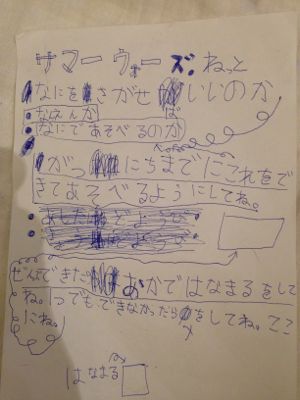 サマーウォーズ。ねっと
なにをさがせばいいのか
なえんか
なにであそべるのか
がつ にちまでにこれをで
きてあそべるようにしてね。
あしたはどようび
ぜんぶできた あかではなまるをして
ね。1つでもできなかったら をしてね。ここ
にね。
はなまる